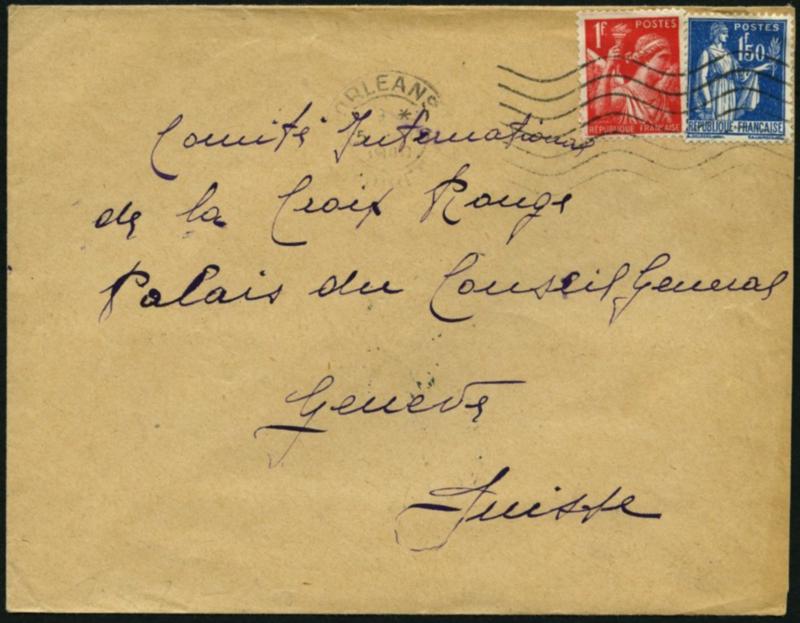 1F POSTES
POSTES
1F50
RÉPUBLIQUE FRANÇAISE
RÉPUBLIQUE-FRANÇAISE
ORLEANS
Comité International
de la Croix Rouge
Palais du Conseil General
Genève
Suisse